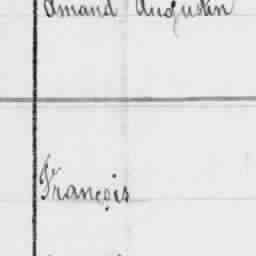 Amand Augustin
François